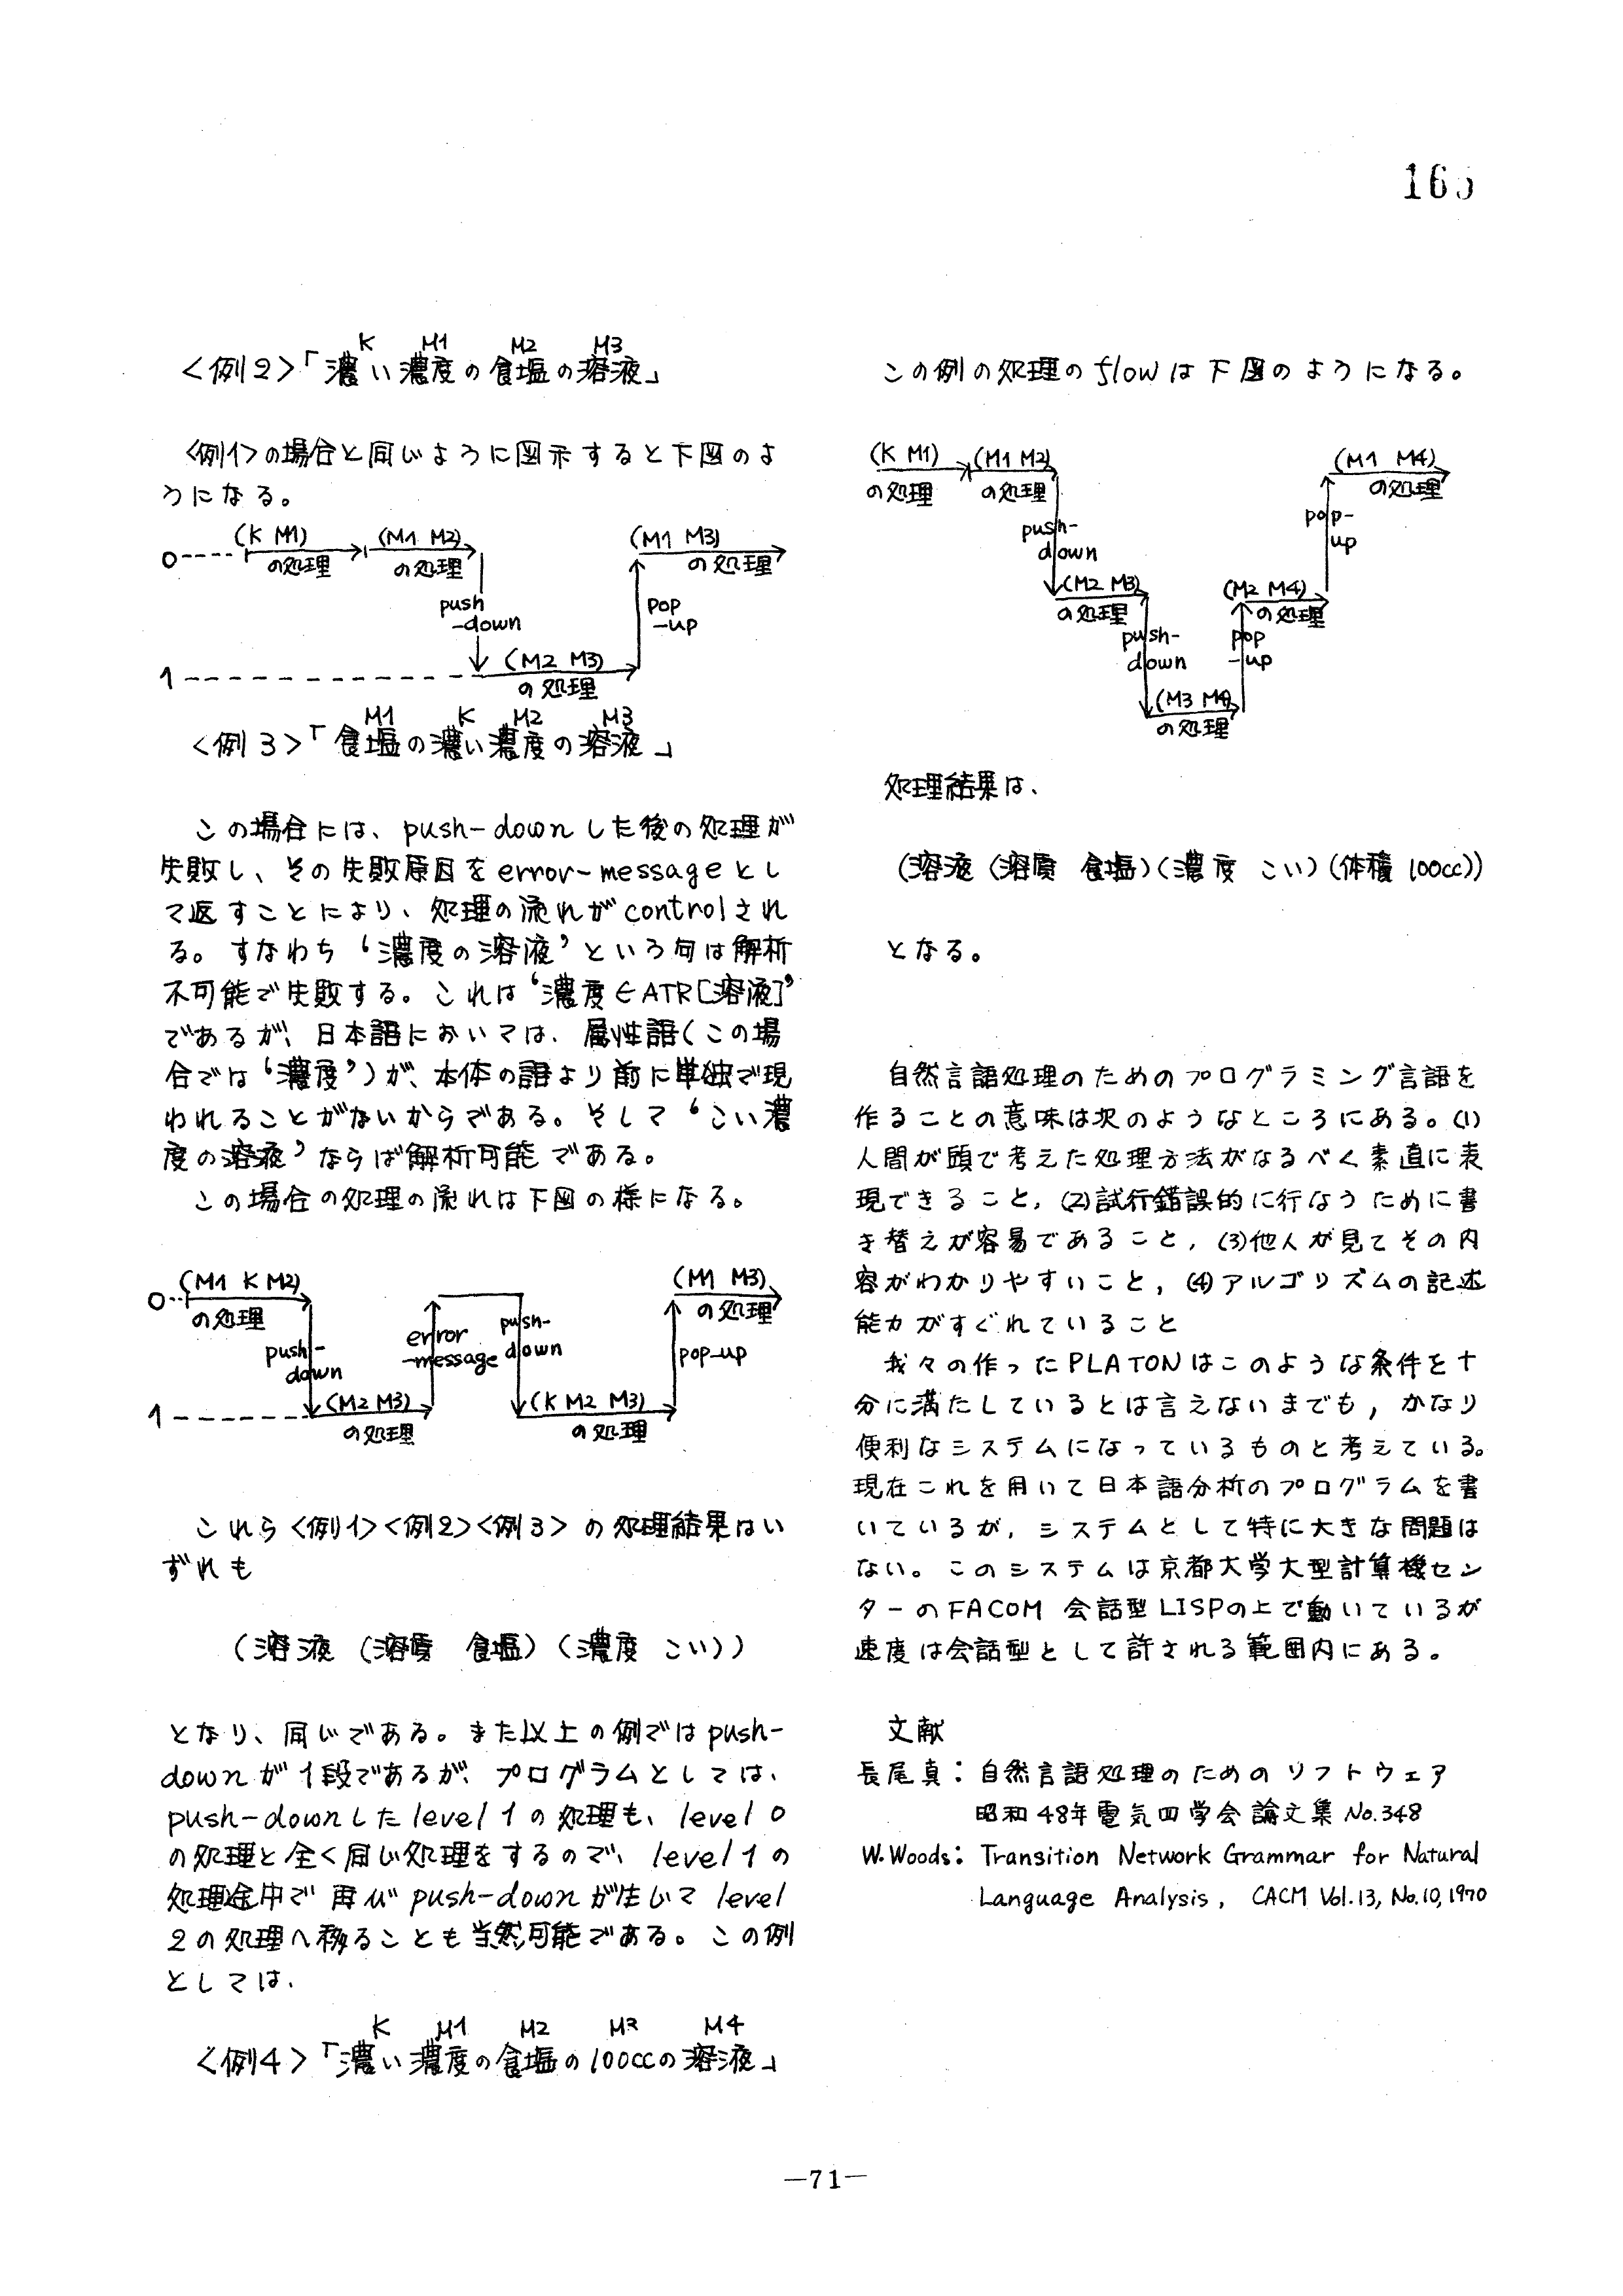 K M1 M2 M3
<例2>「濃い濃度の食塩の溶液」
<例1>の場合と同じように図示すると下図のよ
うになる。
(K M1) (M1 M2) (M1 M3)
0 の処理 の処理 の処理
push
-down
pop
-up
1 (M2 M3)
の処理
M1 K M2 M3
<例3>「食塩の濃い濃度の溶液」
この場合には、push-downした後の処理が
失敗し、その失敗原因をerror-messageとし
て返すことにより、処理の流れがcontrolされ
る。すなわち‘濃度の溶液’という句は解析
不可能で失敗する。これは‘濃度∈ATR[溶液]’
であるが、日本語においては、属性語(この場
合では‘濃度’)が、本体の語より前に単独で現
われることがないからである。そして‘こい濃
度の溶液’ならば解析可能である。
この場合の処理の流れは下図の様になる。
(M1 K M2) (M1 M3)
0 の処理 の処理
push-
down
error
-message
push-
down
pop-up
1 (M2 M3) (K M2 M3)
の処理 の処理
これら<例1><例2><例3>の処理結果はい
ずれも
(溶液 (溶質 食塩)(濃度 こい))
となり、同じである。また以上の例ではpush-
downが1段であるが、プログラムとしては、
push-downしたlevel 1の処理も、level 0
の処理と全く同じ処理をするので、level 1の
処理途中で再びpush-downが生じてlevel
2の処理へ移ることも当然可能である。この例
としては、
K M1 M2 M3 M4
<例4>「濃い濃度の食塩の100ccの溶液」
165
この例の処理のflowは下図のようになる。
(K M1) (M1 M2) (M1 M4)
の処理 の処理 の処理
push-
down
pop-
up
(M2 M3) (M2 M4)
の処理 の処理
push-
down
pop
-up
(M3 M4)
の処理
処理結果は、
(溶液 (溶質 食塩)(濃度 こい)(体積 100cc))
となる。
自然言語処理のためのプログラミング言語を
作ることの意味は次のようなところにある。(1)
人間が頭で考えた処理方法がなるべく素直に表
現できること, (2)試行錯誤的に行なうために書
き替えが容易であること, (3)他人が見てその内
容がわかりやすいこと, (4)アルゴリズムの記述
能力がすぐれていること
我々の作ったPLATONはこのような条件を十
分に満たしているとは言えないまでも, かなり
便利なシステムになっているものと考えている。
現在これを用いて日本語分析のプログラムを書
いているが, システムとして特に大きな問題は
ない。このシステムは京都大学大型計算機セン
ターのFACOM 会話型LISPの上で動いているが
速度は会話型として許される範囲内にある。
文献
長尾真: 自然言語処理のためのソフトウェア
昭和48年電気四学会論文集 No.348
W.Woods: Transition Network Grammar for Natural
Language Analysis, CACM Vol.13, No.10, 1970
—71—